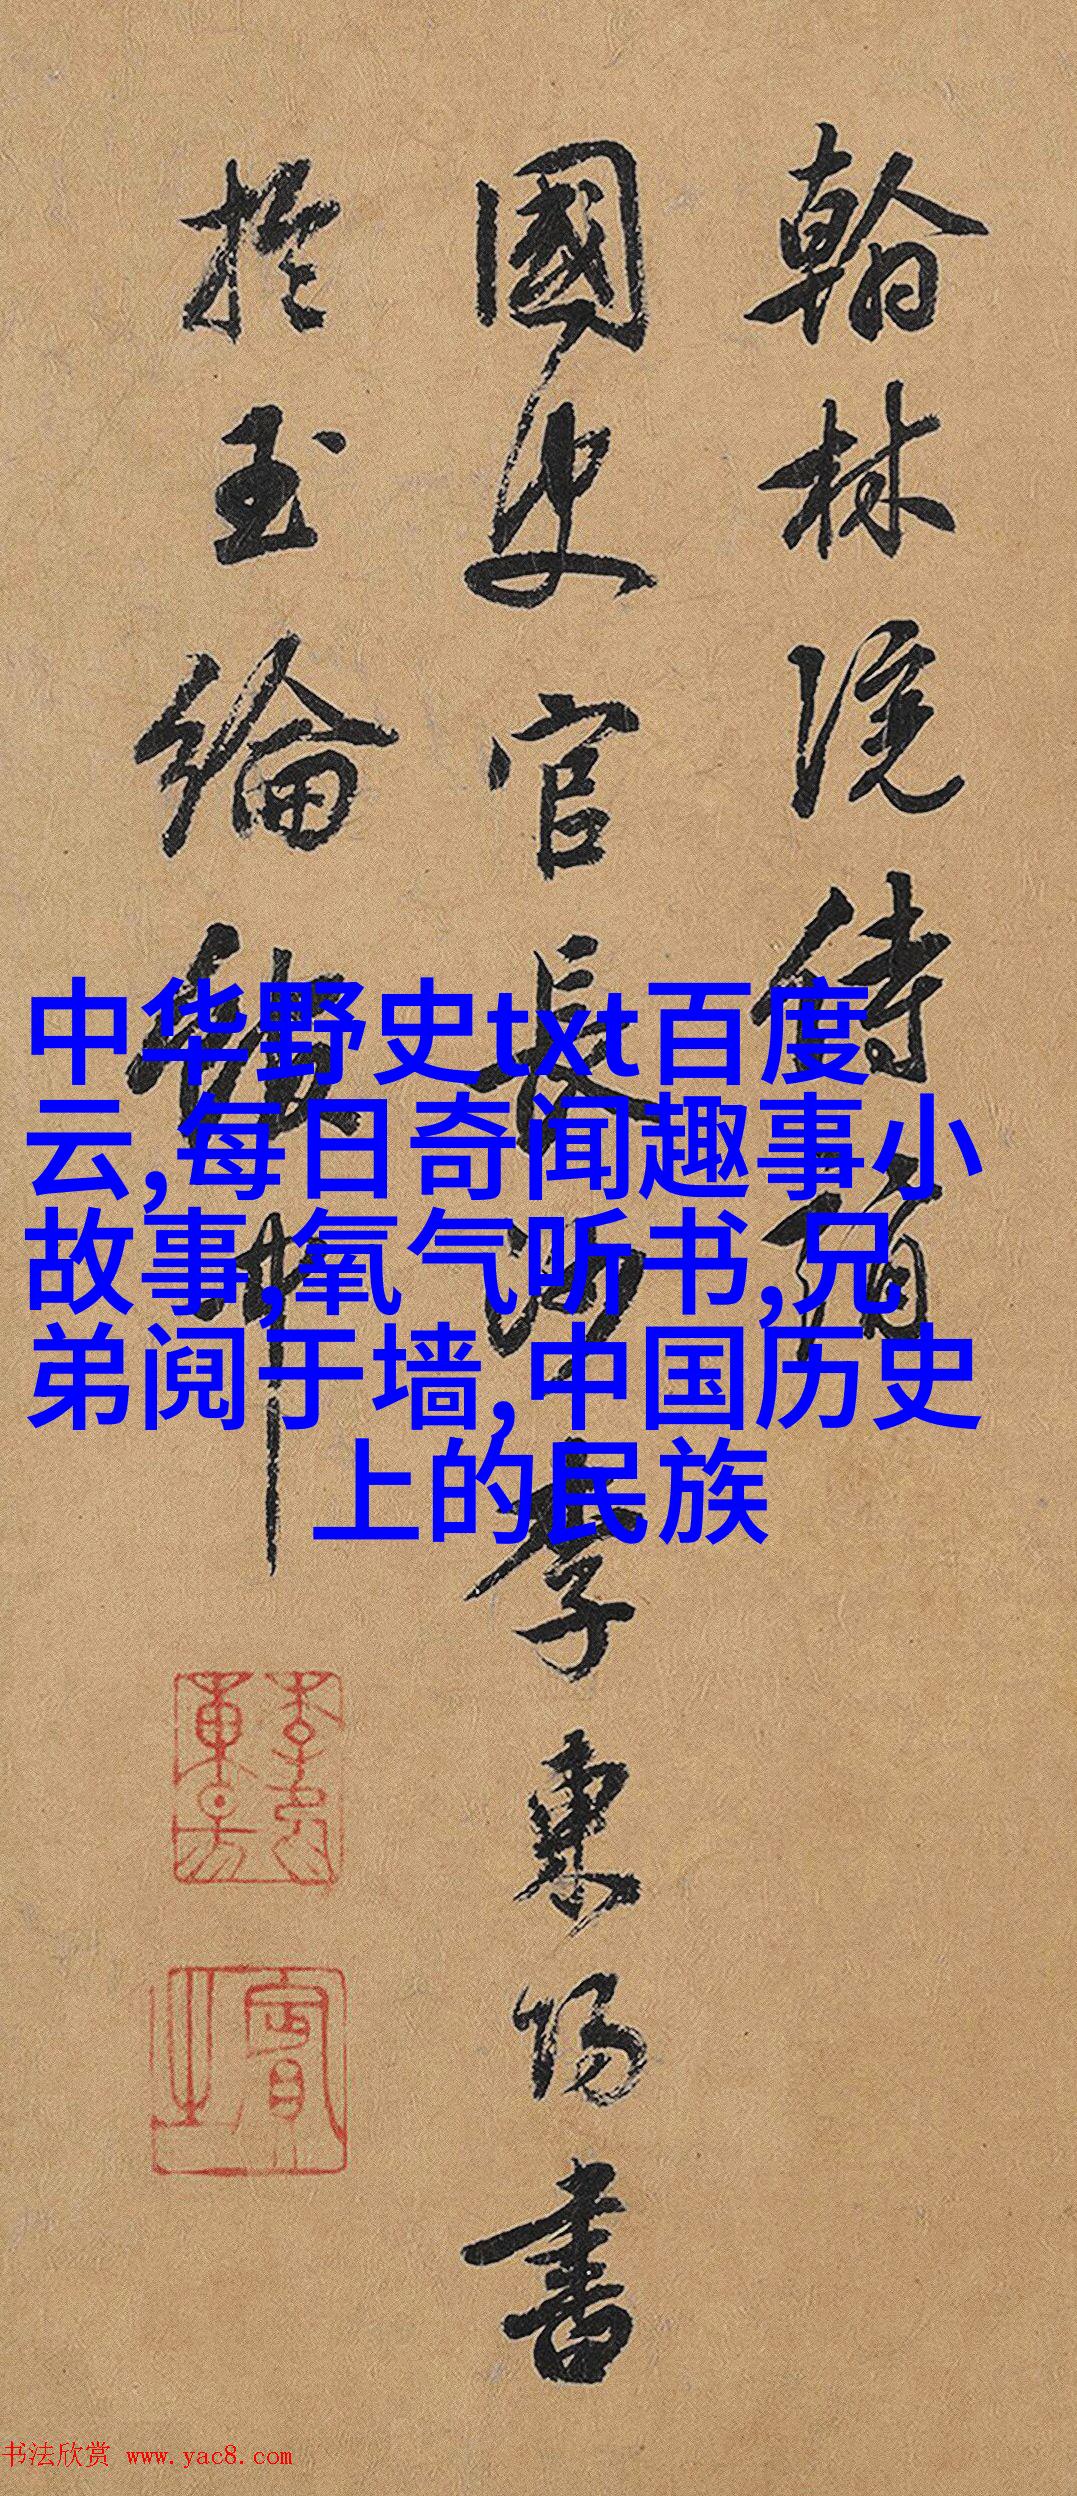 翰林院侍
國史官長沙李東陽書
於玉綸
中华野史txt百度
云,每日奇闻趣事小
故事,氧气听书,兄
弟阋于墙,中国历史
上的民族
書法欣赏 www.yac8.com